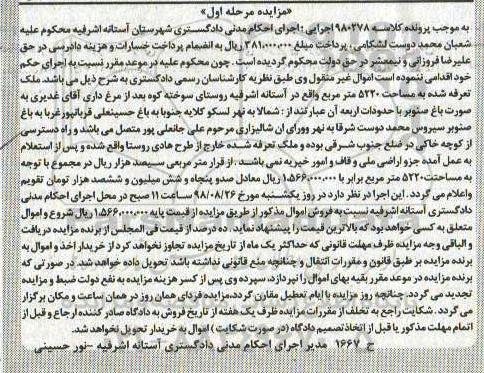 «مزایده مرحله اول»
به موجب پرونده کلاسه ۹۸۰۲۷۸ اجرایی؛ اجرای احکام مدنی دادگستری شهرستان آستانه اشرفیه محکوم علیه
شعبان محمد دوست لشکامی، پرداخت مبلغ ۳۸۱.۰۰۰.۰۰۰ ریال به انضمام پرداخت خسارات و هزینه دادرسی در حق
علیرضا فروزانی و نیمعشر در حق دولت محکوم گردیده است. چون محکوم علیه در موعد مقرر نسبت به اجرای حکم
خود اقدامی ننموده است اموال غیر منقول وی طبق نظریه کارشناسان رسمی دادگستری به شرح ذیل می باشد. ملک
تعرفه شده به مساحت ۵۲۲۰ متر مربع واقع در آستانه اشرفیه روستای سوخته کوه بعد از مرغ داری آقای غدیری به
صورت باغ صنوبر با حدودات اربعه آن عبارتند از : شمالا به نهر لسکو کلایه جنوبا به باغ حسینعلی قربانپور غربا به باغ
صنوبر سیروس محمد دوست شرقا به نهر وورای ان شالیزاری مرحوم علی جانعلی پور متصل می باشد و راه دسترسی
از کوچه خاکی در ضلع جنوب شرقی بوده و ملک تعرفه شده خارج از طرح هادی روستا واقع شده و پس از استعلام
به عمل آمده جزو اراضی ملی و قاف و امور خیریه نمی باشد. از قرار متر مربعی سیصد هزار ریال در مجموع با توجه
به مساحت ۵۲۲۰ متر مربع برابر با ۱.۵۶۶.۰۰۰.۰۰۰ ریال معادل صدو پنجاه و شش میلیون و ششصد هزار تومان تقویم
واعلام می گردد. این اجرا در نظر دارد در روز یکشنبه مورخ ۹۸/۰۸/۲۶ ساعت ۱۱ صبح در محل اجرای احکام مدنی
دادگستری آستانه اشرفیه نسبت به فروش اموال مذکور از طریق مزایده از قیمت پایه ۱.۵۶۶.۰۰۰.۰۰۰ ریال شروع و اموال
متعلق به کسی خواهد بود که بالاترین قیمت را پیشنهاد نماید. ده درصد از قیمت فی المجلس از برنده مزایده دریافت
و الباقی وجه مزایده ظرف مهلت قانونی که حداکثر یک ماه از تاریخ مزایده تجاوز نخواهد کرد از خریدار اخذ و اموال به
برنده مزایده بر طبق قانون و مقررات انتقال و چنانچه منع قانونی نداشته باشد تحویل داده خواهد شد. در صورتی که
برنده مزایده در موعد مقرر بقیه بهای اموال را نپردازد، سپرده وی پس از کسر هزینه مزایده به نفع دولت ضبط و مزایده
تجدید می گردد. چنانچه روز مزایده با ایام تعطیل مقارن گردد، مزایده فردای همان روز در همان ساعت و مکان برگزار
می گردد. شکایت راجع به تخلف از مقررات مزایده ظرف یک هفته از تاریخ فروش به دادگاه صادر کننده ارجاع و قبل از
اتمام مهلت مذکور یا قبل از اتخاذ تصمیم دادگاه (در صورت شکایت) اموال به خریدار تحویل نخواهد شد.
ح ۱۶۶۷ مدیر اجرای احکام مدنی دادگستری آستانه اشرفیه - نور حسینی